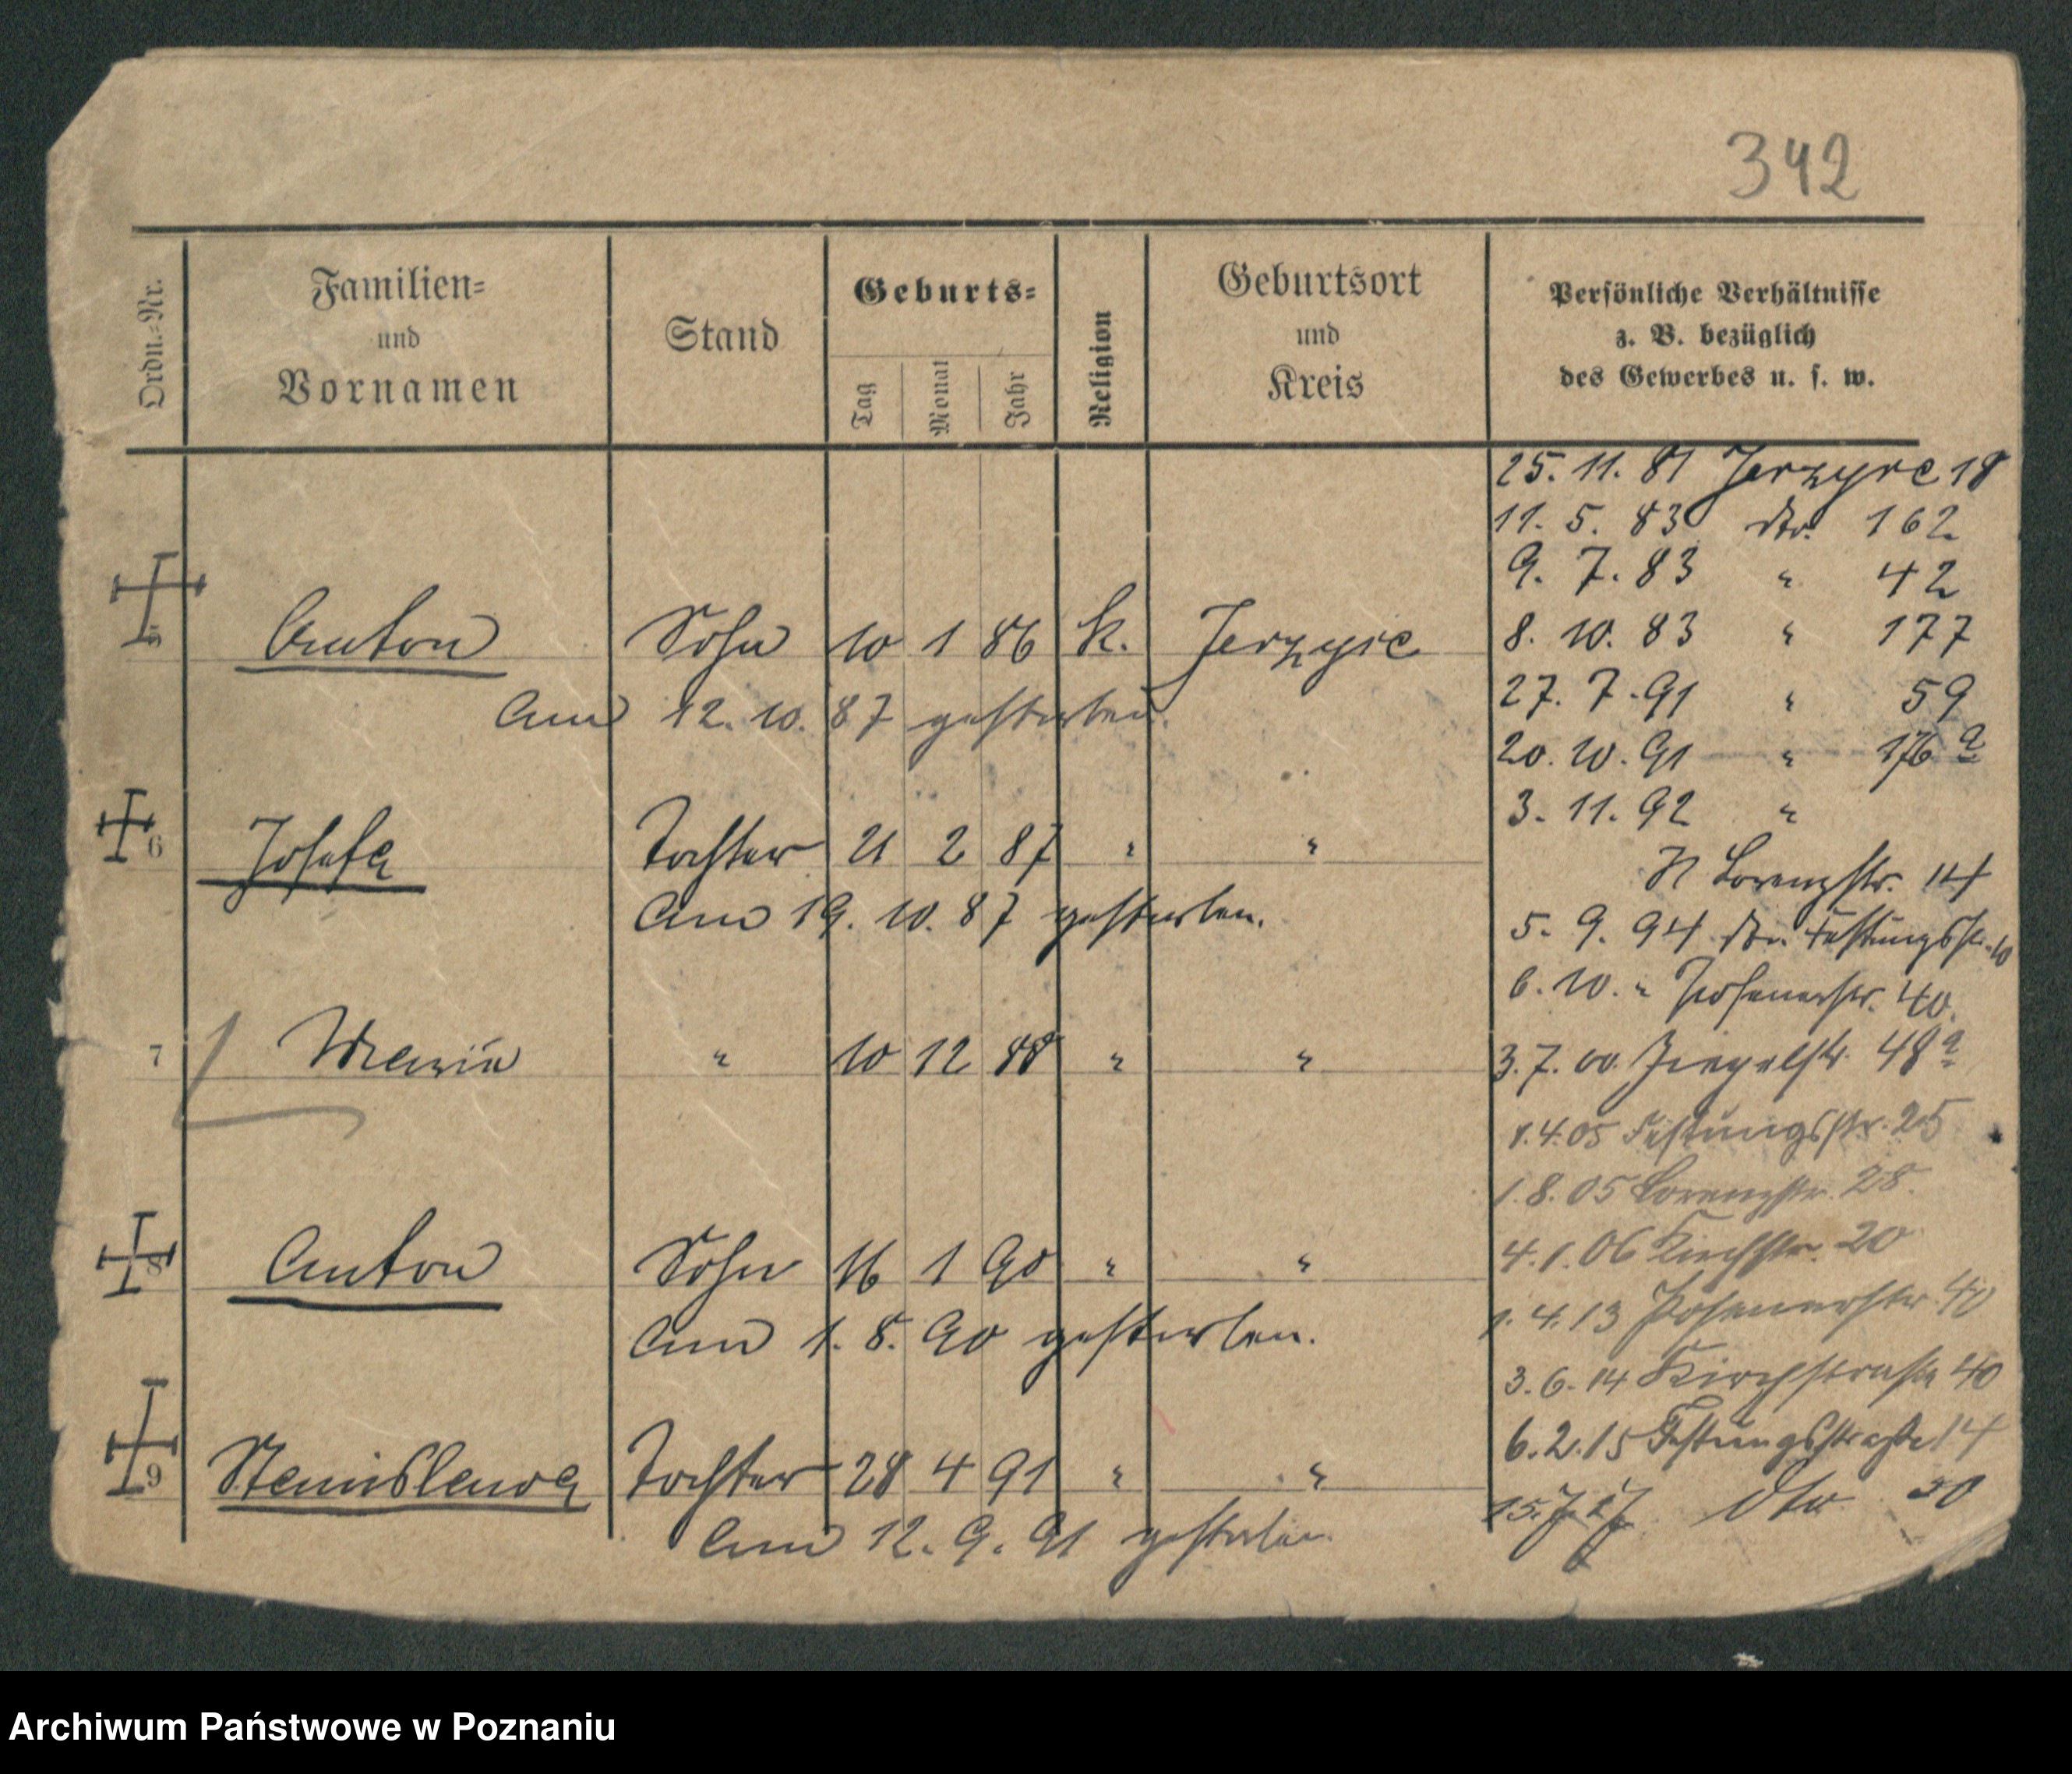 342
Ordn.-Nr.
Familien-
und
Vornamen
Stand
Geburts-
Tag
Monat
Jahr
Religion
Geburtsort
und
Kreis
Persönliche Verhältnisse
z. B. bezüglich
des Gewerbes u. s. w.
5 Anton Sohn 10 1 86 k. Jerzyce
Am 12. 10. 87 gestorben.
6 Josefa Tochter 21 2 87 " "
Am 19. 10. 87 gestorben.
7 Maria " 10 12 88 " "
8 Anton Sohn 16 1 90 " "
Am 1. 8. 90 gestorben.
9 Stanislawa Tochter 28 4 91 " "
Am 12. 9. 91 gestorben
25. 11. 81 Jerzyce 18
11. 5. 83 dto. 162
9. 7. 83 " 42
8. 10. 83 " 177
27. 7. 91 " 59
20. 10. 91 " 176 a
3. 11. 92 "
Lorenzstr. 14
5. 9. 94 Festungsstr. 10
6. 10. " Posenerstr. 40.
3. 7. 00. Ziegelstr. 48 a
1. 4. 05 Festungsstr. 25
1. 8. 05 Lorenzstr. 28.
4. 1. 06 Kirchstr. 20
1. 4. 13 Posenerstr. 40
3. 6. 14 Kirchstraße 40
6. 2. 15 Festungsstraße 14
15. 7. 17 dto 20
Archiwum Państwowe w Poznaniu